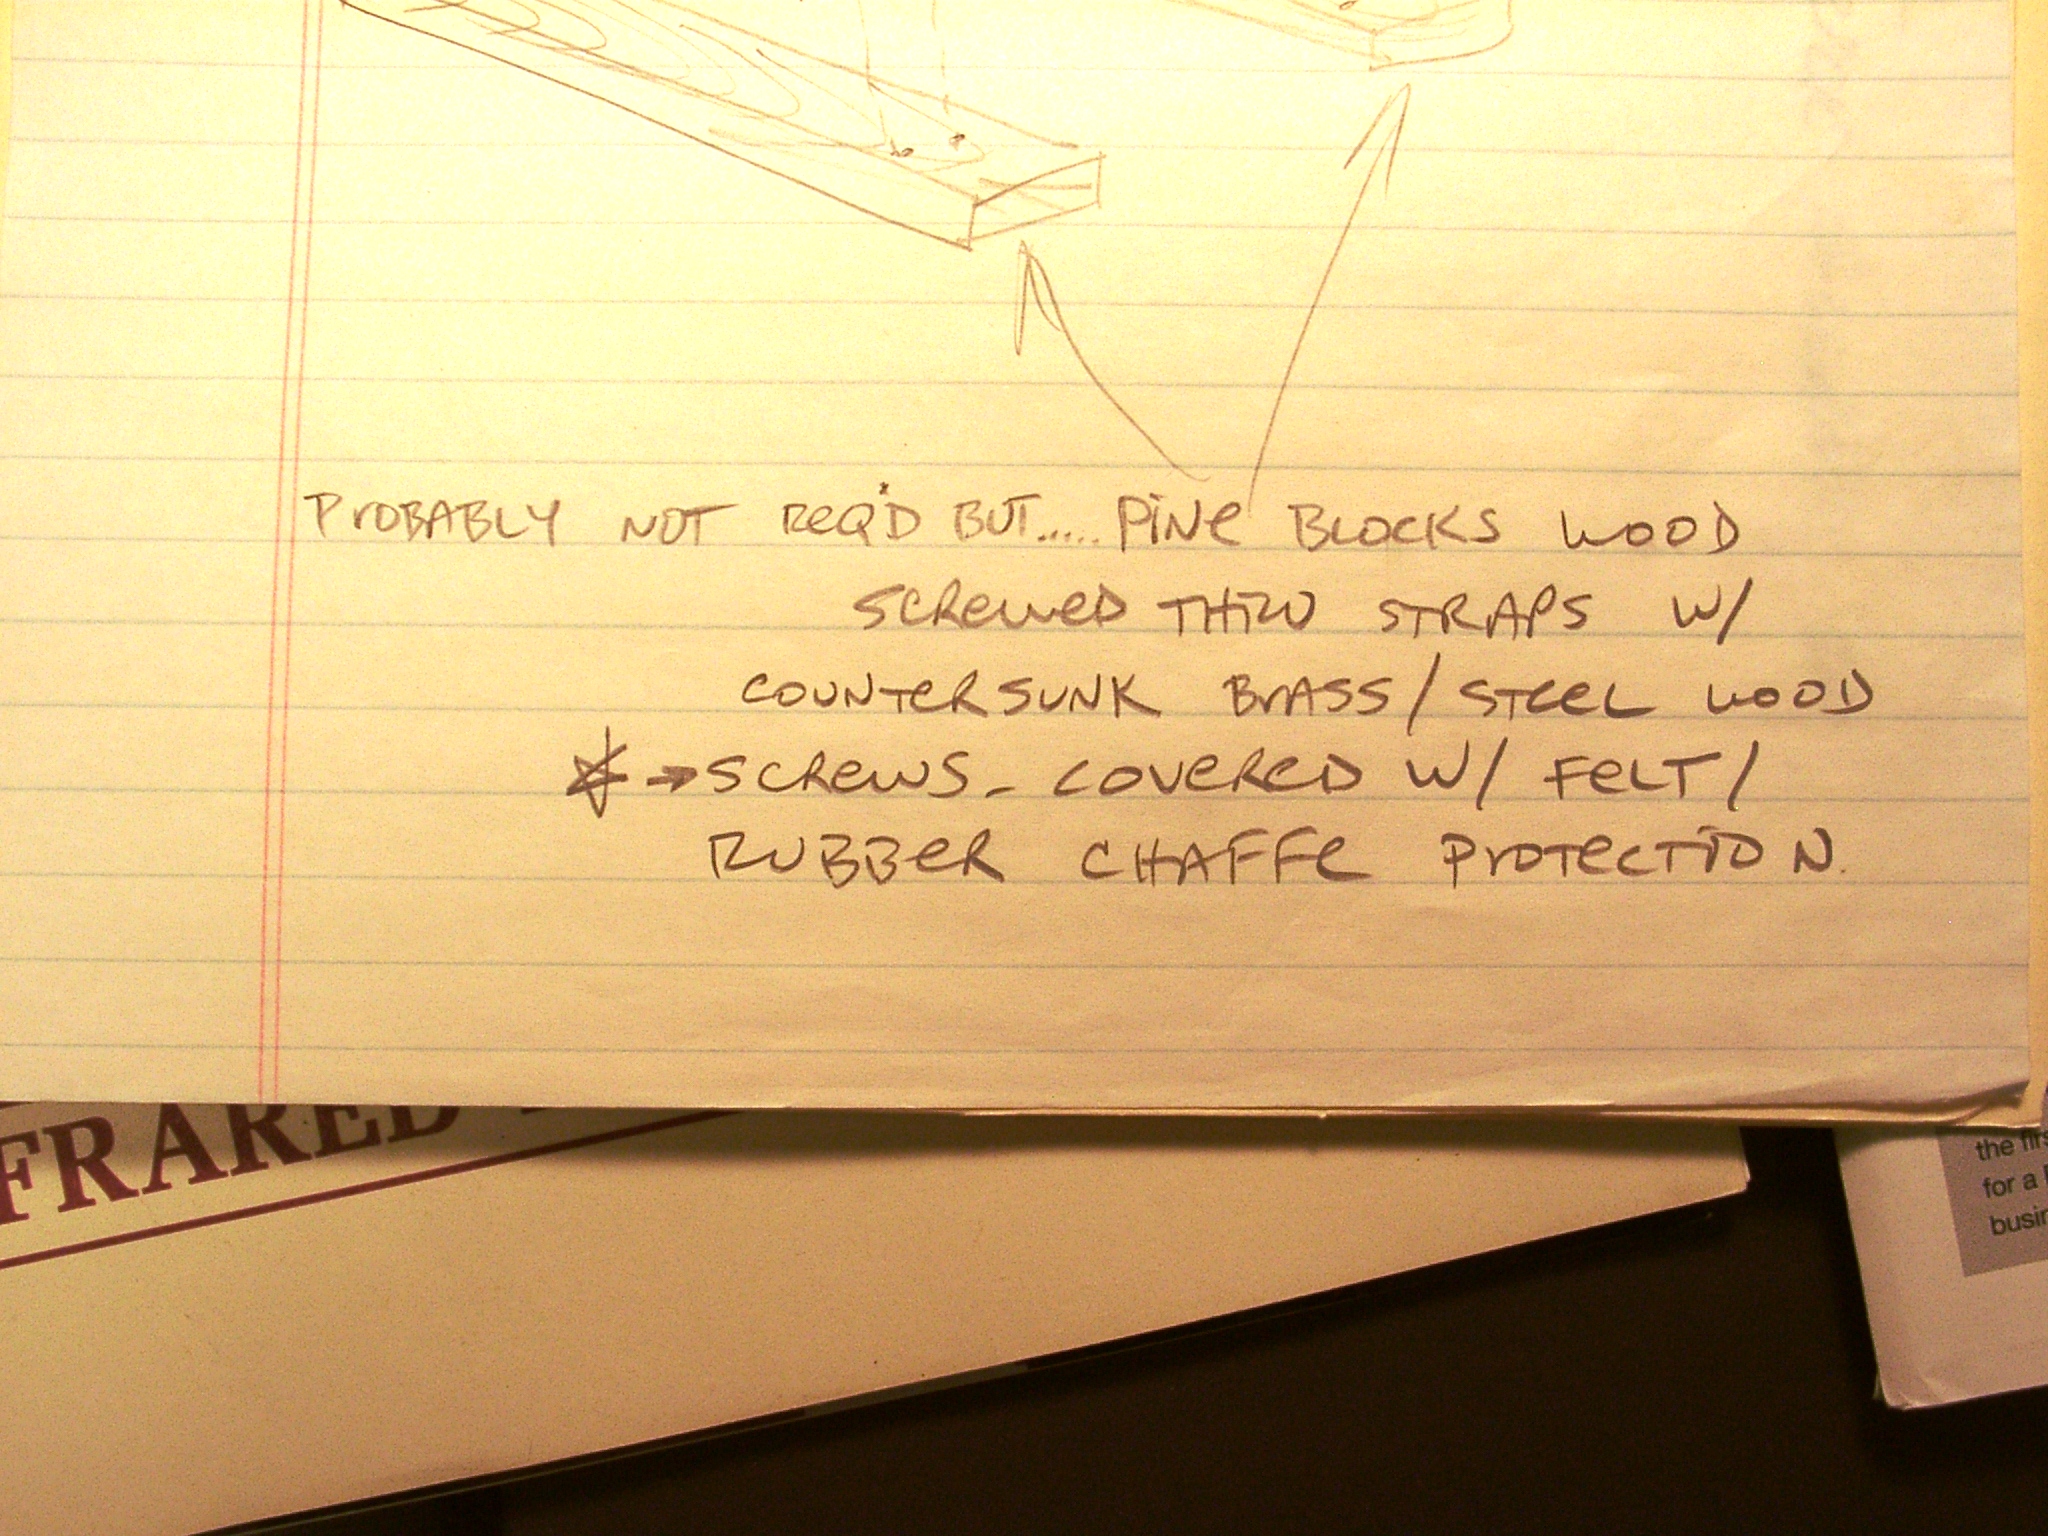 PROBABLY NOT REQ'D BUT..... PINE BLOCKS WOOD
SCREWED THRU STRAPS W/
COUNTERSUNK BRASS/STEEL WOOD
☆→SCREWS - COVERED W/ FELT/
RUBBER CHAFFE PROTECTION.
FRARED
the firs
for a
busin